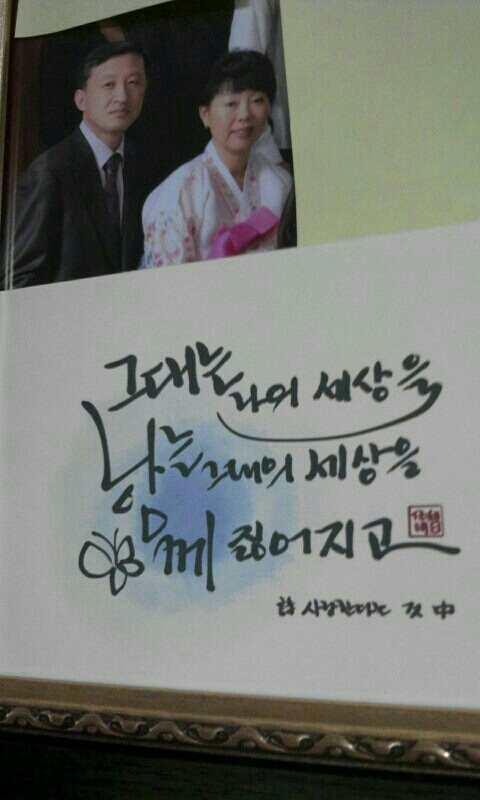 그대는 나의 세상을
나는 그대의 세상을
함께 짊어지고
詩 사랑한다는 것 中